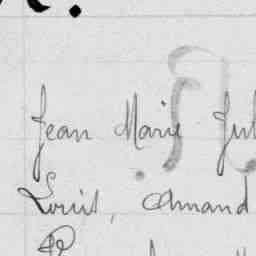 Jean Marie Jul
Louis, Amand